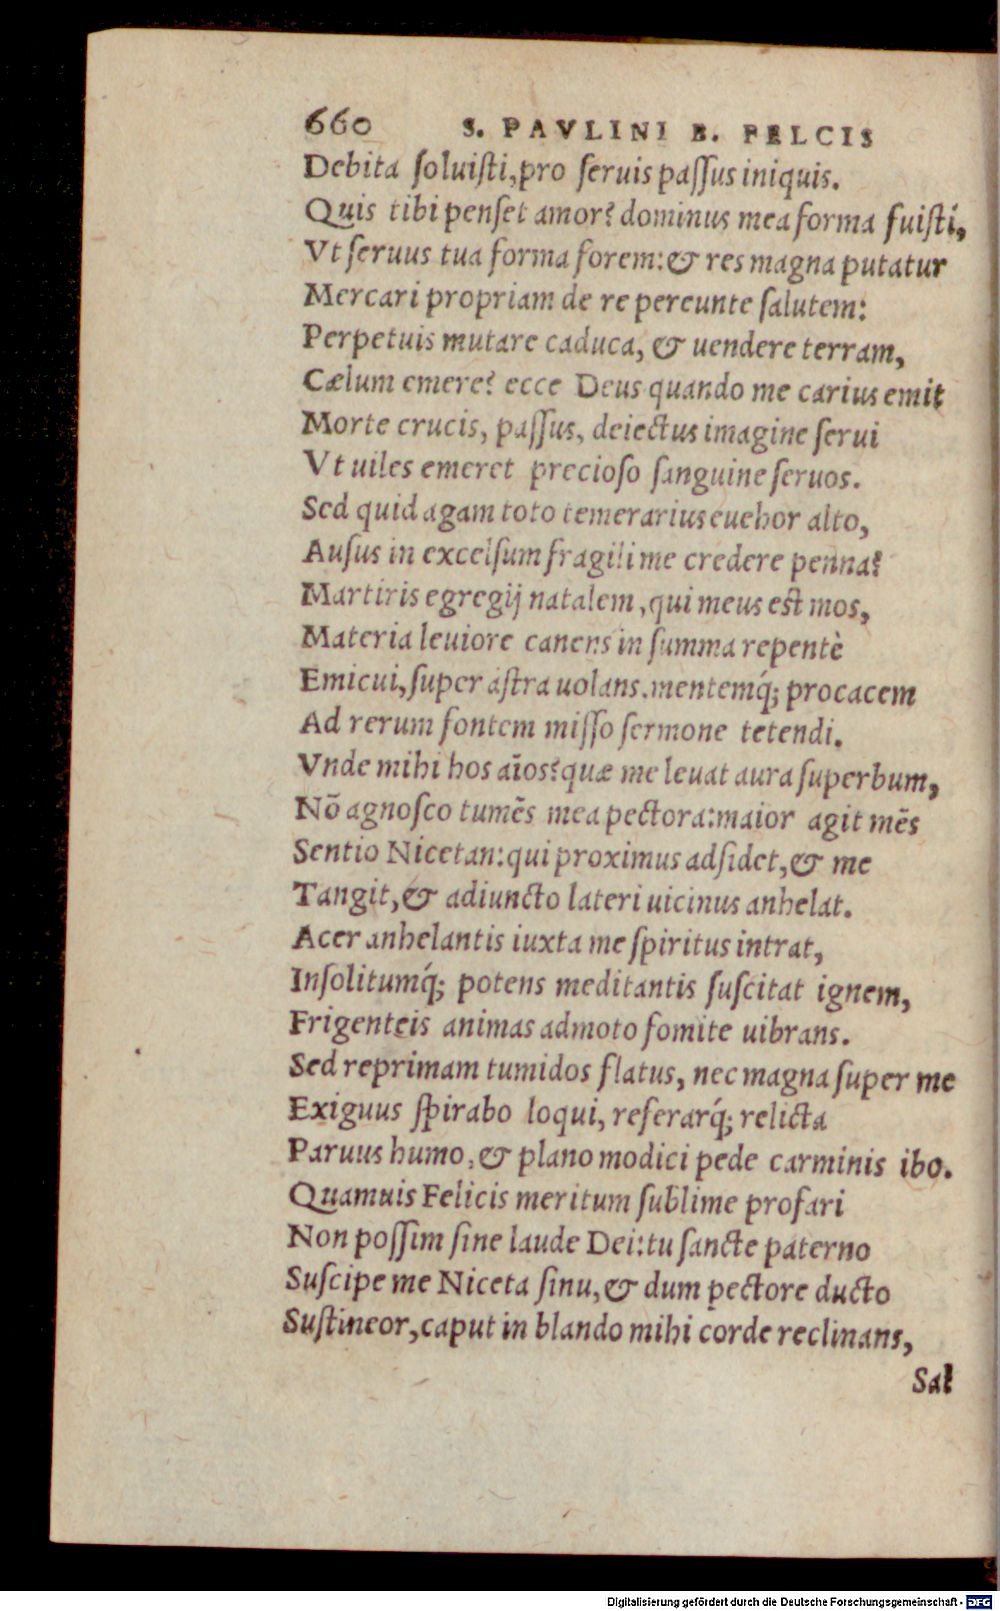 660 S. PAVLINI B. FELCIS
Debita ſoluiſti, pro ſeruis paſſus iniquis.
Quis tibi penſet amor? dominus mea forma fuiſti,
Vt ſeruus tua forma forem: & res magna putatur
Mercari propriam de re pereunte ſalutem:
Perpetuis mutare caduca, & uendere terram,
Cælum emere? ecce Deus quando me carius emit
Morte crucis, paſſus, deiectus imagine ſerui
Vt uiles emeret precioſo ſanguine ſeruos.
Sed quid agam toto temerarius euehor alto,
Auſus in excelſum fragili me credere penna?
Martiris egregij natalem, qui meus eſt mos,
Materia leuiore canens in ſumma repentè
Emicui, ſuper aſtra uolans. mentemq́; procacem
Ad rerum fontem miſſo ſermone tetendi.
Vnde mihi hos aīos? quæ me leuat aura ſuperbum,
Nō agnoſco tumēs mea pectora: maior agit mēs
Sentio Nicetan: qui proximus adſidet, & me
Tangit, & adiuncto lateri uicinus anhelat.
Acer anhelantis iuxta me ſpiritus intrat,
Inſolitumq́; potens meditantis ſuſcitat ignem,
Frigenteis animas admoto fomite uibrans.
Sed reprimam tumidos flatus, nec magna ſuper me
Exiguus ſpirabo loqui, referarq́; relicta
Paruus humo, & plano modici pede carminis ibo.
Quamuis Felicis meritum ſublime profari
Non poſſim ſine laude Dei: tu ſancte paterno
Suſcipe me Niceta ſinu, & dum pectore ducto
Suſtineor, caput in blando mihi corde reclinans,
Sal
Digitalisierung gefördert durch die Deutsche Forschungsgemeinschaft - DFG